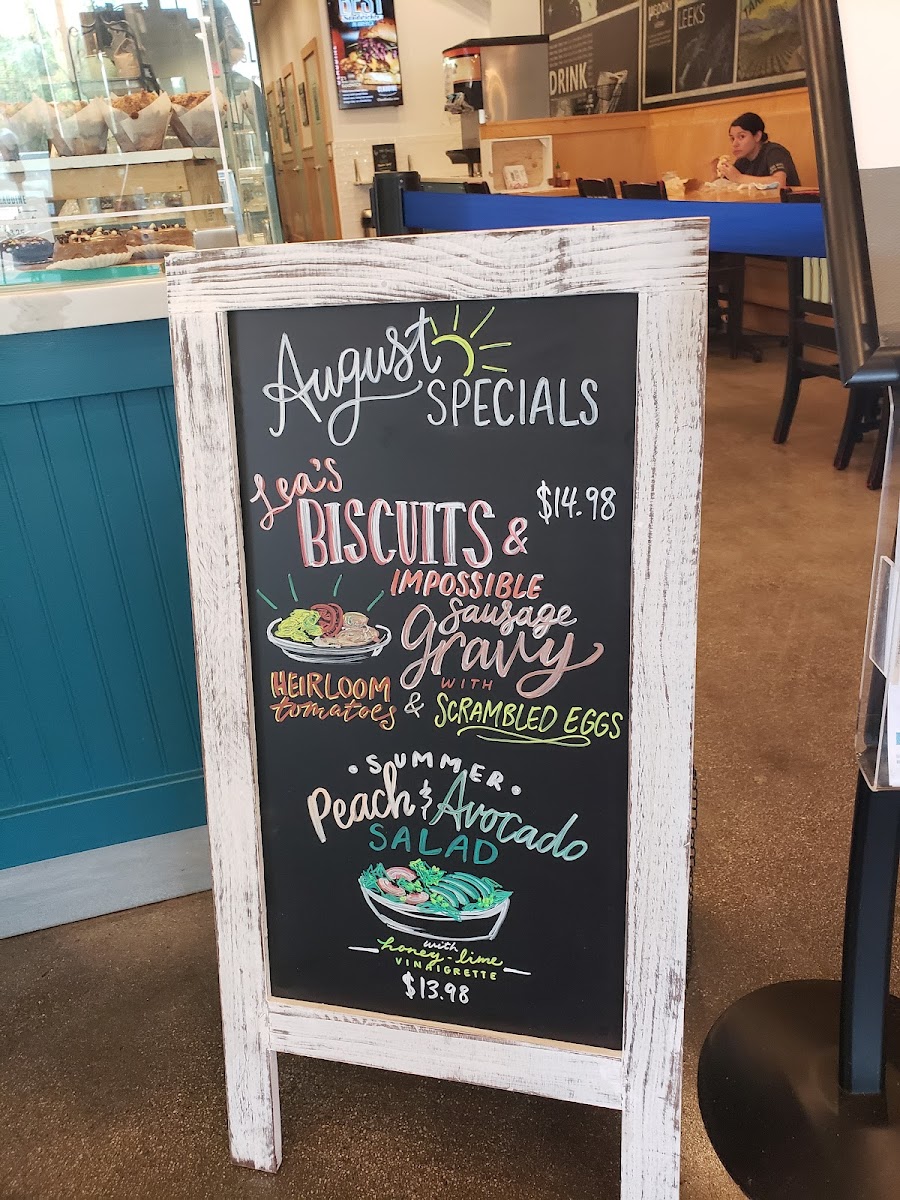 BEST
DRINK
LEEKS
August
SPECIALS
Lea's
BISCUITS & $14.98
IMPOSSIBLE
Sausage
gravy
WITH
HEIRLOOM
tomatoes & SCRAMBLED EGGS
SUMMER
Peach & Avocado
SALAD
with
honey-lime
VINAIGRETTE
$13.98